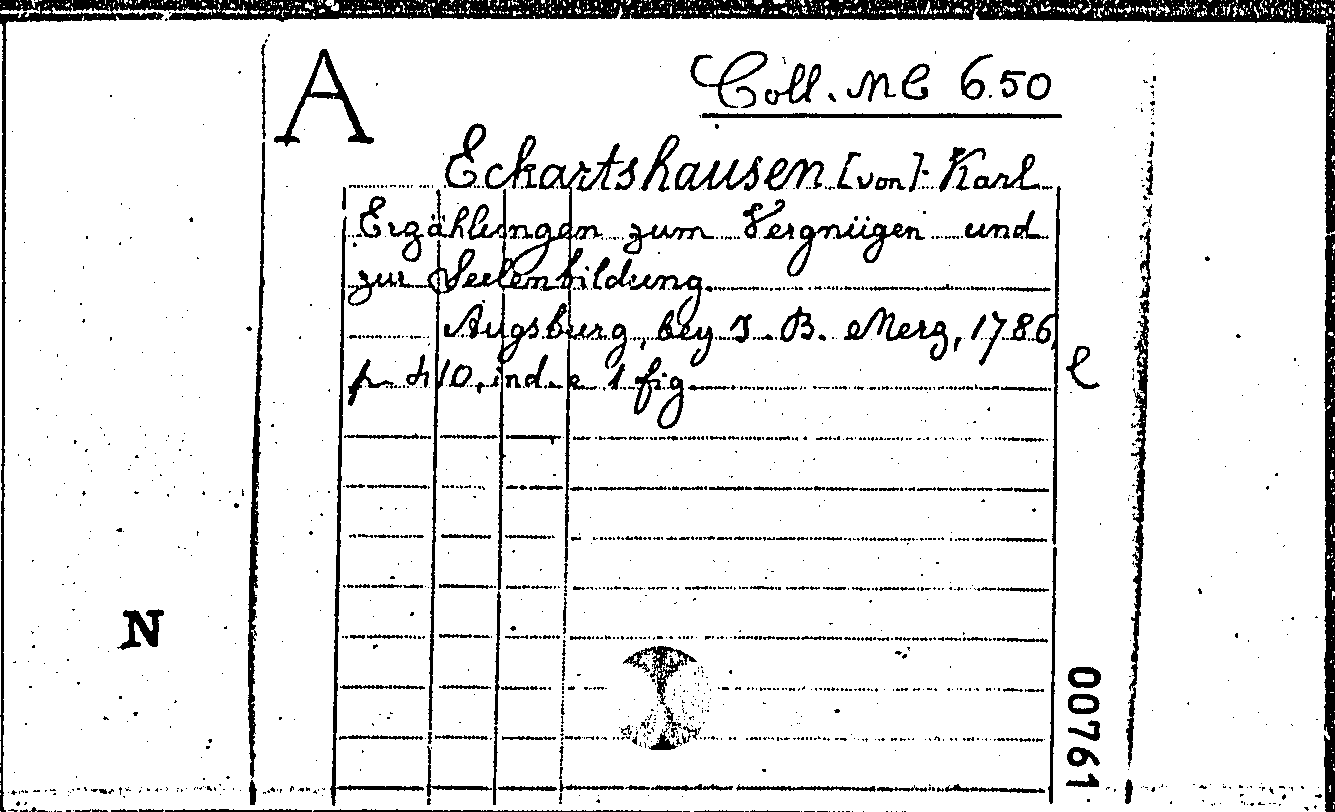 A
Coll. MC 6.50
Eckartshausen [von]: Karl
Erzählungen zum Vergnügen und
zur Seelenbildung.
Augsburg, bey I. B. Merz, 1786,
p 410, ind. e 1 fig
l
N
00761